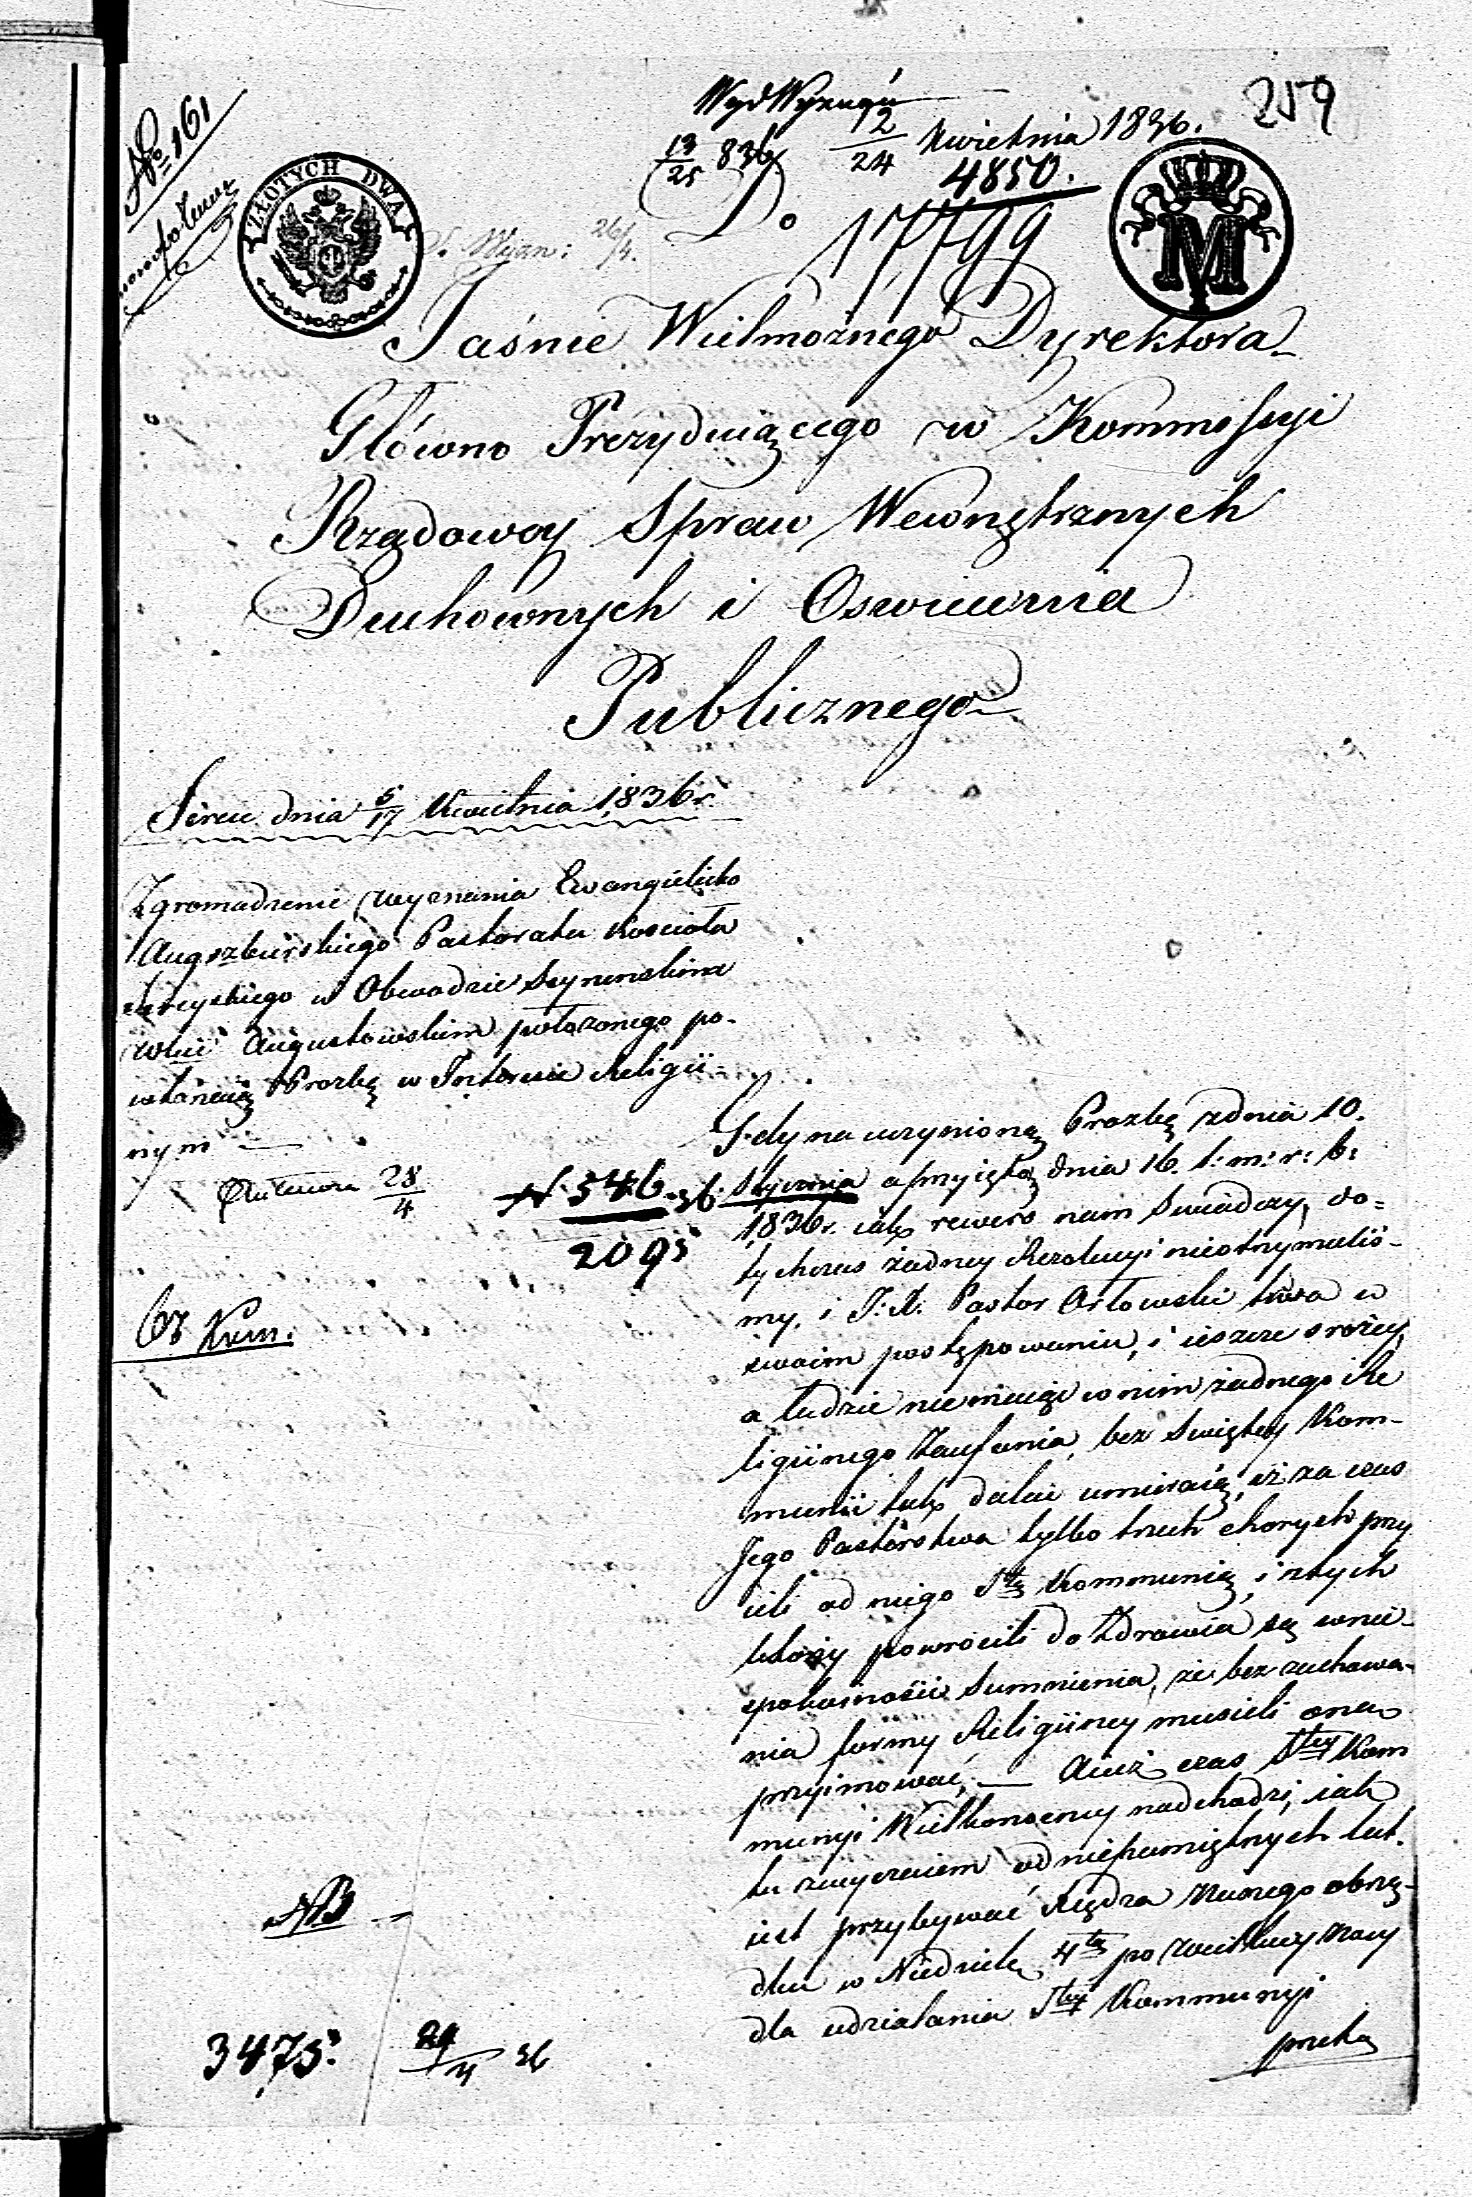 259
No 161
Wyd Wyznań
12/24 Kwietnia 1836.
13/25 836
4850.
17799
ZŁOTYCH DWA
26/4.
M
Do
Jaśnie Wielmożnego Dyrektora
Główno Prezyduiącego w Kommissyi
Rządowey Spraw Wewnętrznych
Duchownych i Oswiecenia
Publicznego
Sereie dnia 5/17 Kwietnia 1836 r.
Zgromadzenie wyznania Ewangielicko
Augszburskiego Pastoratu Kościoła
w Obwodzie Seynenskim
Wdzie Augustowskim położonego po-
wtarzaią Prozbę w Interesie Religii-
nym —
28/4
N. 546. 36.
2095
Gdy na uczynioną Prozbę zdnia 10.
Stycznia a przyiętą dnia 16. t: m: r: b:
1836 r. iak rewers nam swiadczy, do=
tychczas żadney Rezolucyi nieotrzymaliś-
my, i J: X: Pastor Orłowski trwa w
swoim postępowaniu, i ieszcze srożey,
a ludzie niemaiąc w nim żadnego Re
ligiinego Zaufania, bez Swiętey Kom-
munii tak daley umieraią, iż za czas
Jego Pastorstwa tylko trzech chorych przy
ieli od niego Stą Kommunią, i ztych
którzy powrócili do Zdrowia są w nie-
spokoiności Sumnienia, że bez zachowa-
nia formy Religiiney musieli oną
przyimować, — Aiuż czas Stey Kom
munyi Wielkanocney nadchodzi, iak
tu zwyczaiem od niepamiętnych lat.
iest przybywać Xiędza Naszego obrzą-
dku w Niedzielę 4tą po Wielkiey Nocy
dla udzialania Stey Kommunyi
3475.
29/4 36